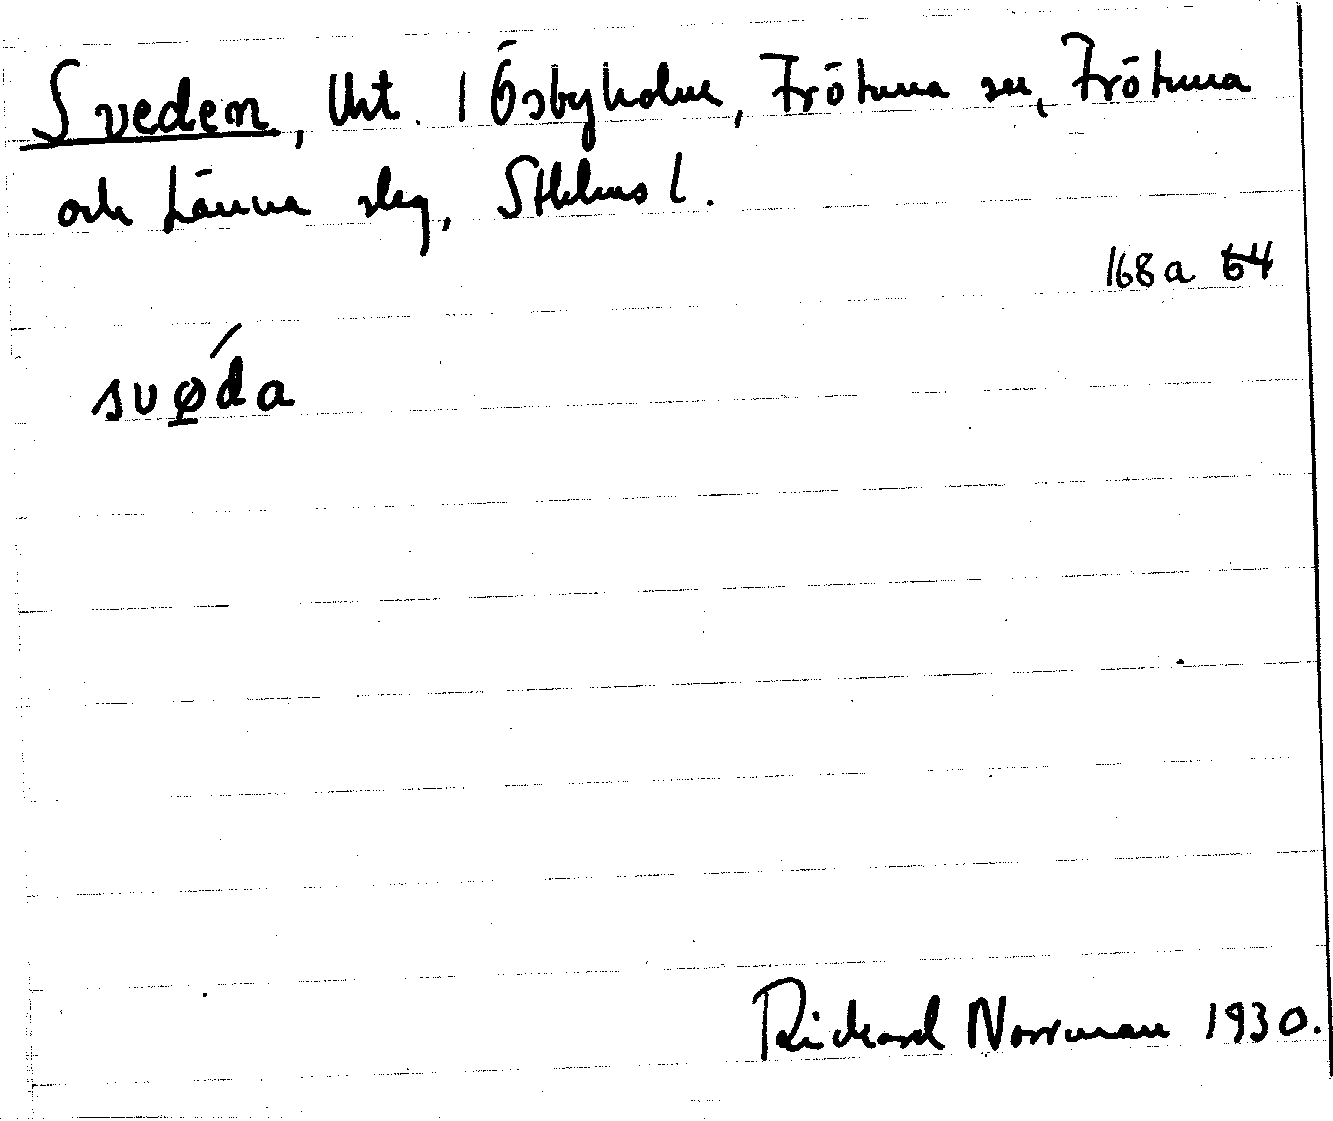 Svedem, Urt. 1 Ösbyholm, Frötuna sn, Frötuna
och Länna slg, Sthlms l.
168a 64
svǿ̱da
Rickard Norrman 1930.